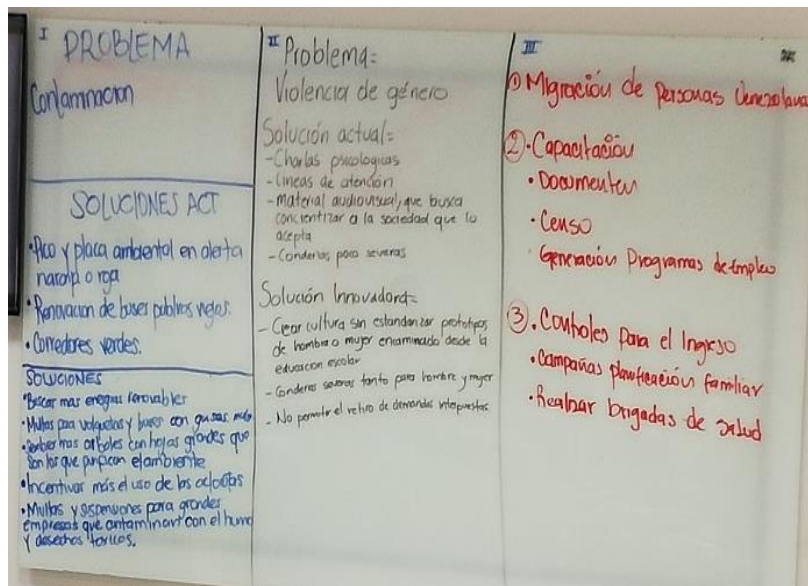 I PROBLEMA
Contaminacion
SOLUCIONES ACT
• Pico y placa ambiental en alerta
naranja o roja
• Renovacion de buses publicos viejos.
• Corredores verdes.
SOLUCIONES
• Buscar mas energias renovables
• Multas para volquetas y buses con
• Sembrar mas arboles con hojas grandes que
son los que purifican el ambiente
• Incentivar más el uso de las ciclo
• Multas y suspensiones para grandes
empresas que contaminan con el humo
y desechos toxicos.
II Problema:
Violencia de género
Solución actual:
- Charlas psicologicas
- Lineas de atención
- Material audiovisual, que busca
concientizar a la sociedad que lo
acepta
- Condenas poco severas
Solución Innovadora:
- Crear cultura sin estandarizar prototipos
de hombre o mujer encaminado desde la
educacion escolar
- Condenas severas tanto para hombre y mujer
- No permitir el retiro de demandas interpuestas
III
① Migración de personas Venezolana
②. Capacitación
• Documentar
• Censo
• Generación Programas de Empleo
③. Controles para el Ingreso
• Campañas planificación familiar
• Realizar brigadas de salud